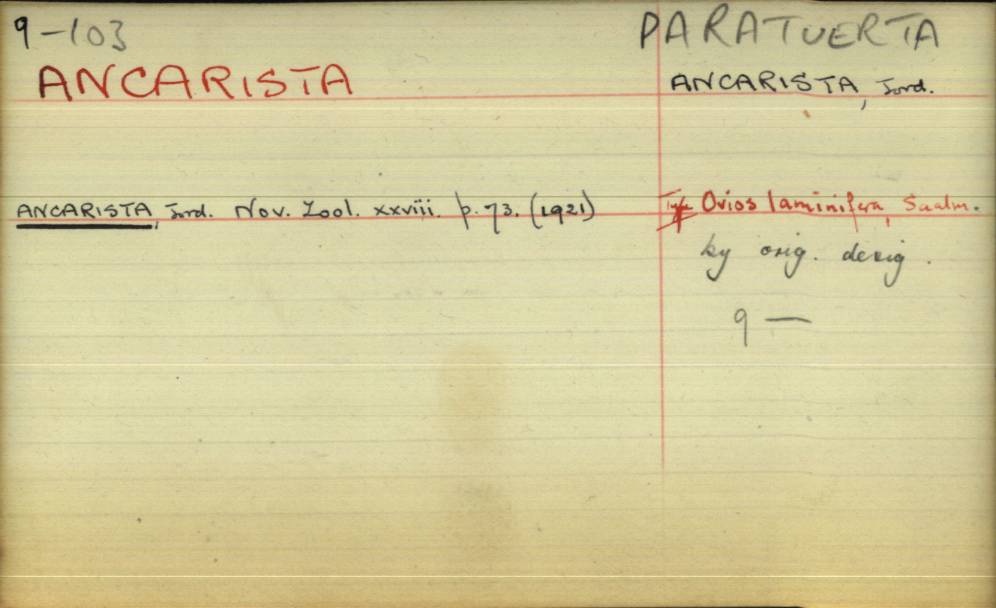 9-103
PARATUERTA
ANCARISTA
ANCARISTA, Jord.
ANCARISTA, Jord. Nov. Zool. xxviii. p. 73. (1921)
Type Ovios laminifera, Saalm.
by orig. desig.
9 —